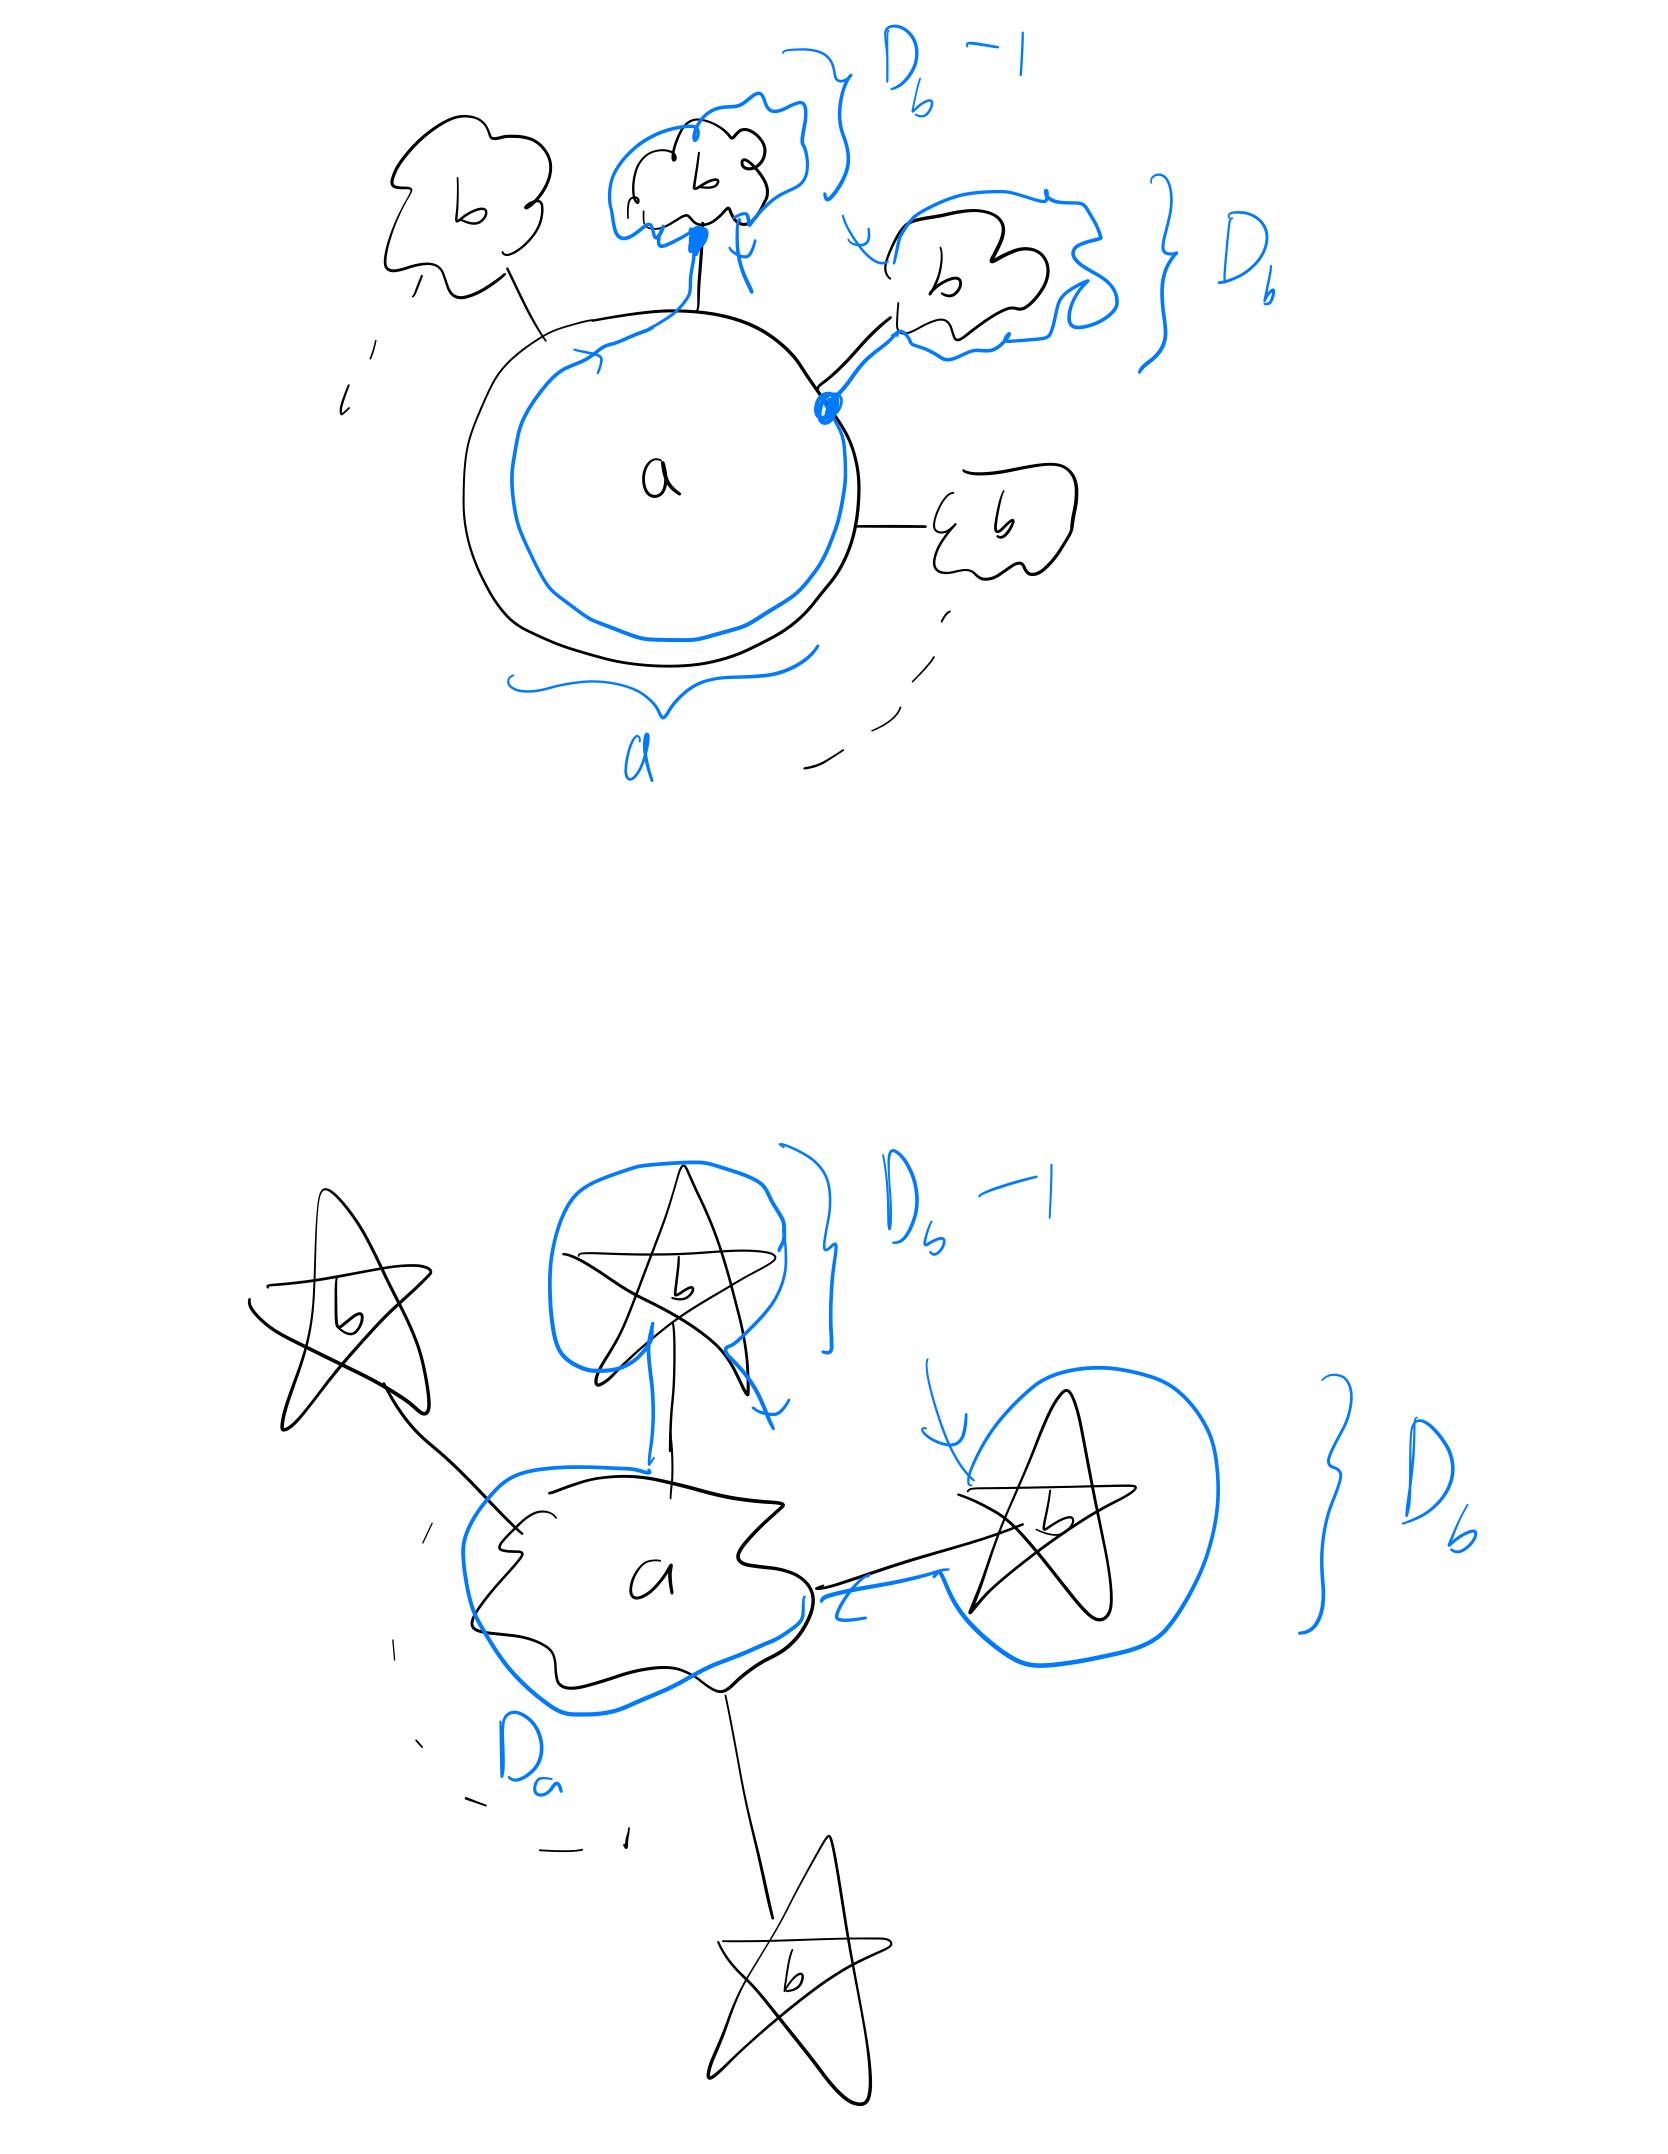 D_b - 1
b
b
b
D_b
a
b
a
D_b - 1
b
b
D_b
b
a
D_a
b